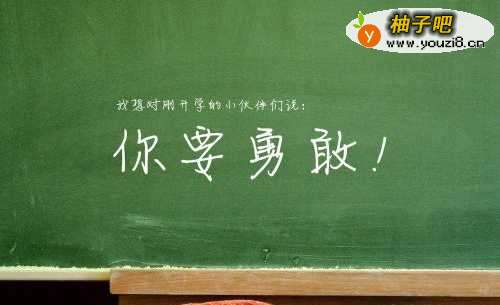 柚子吧
www.youzi8.cn
我想对刚开学的小伙伴们说：
你要勇敢！